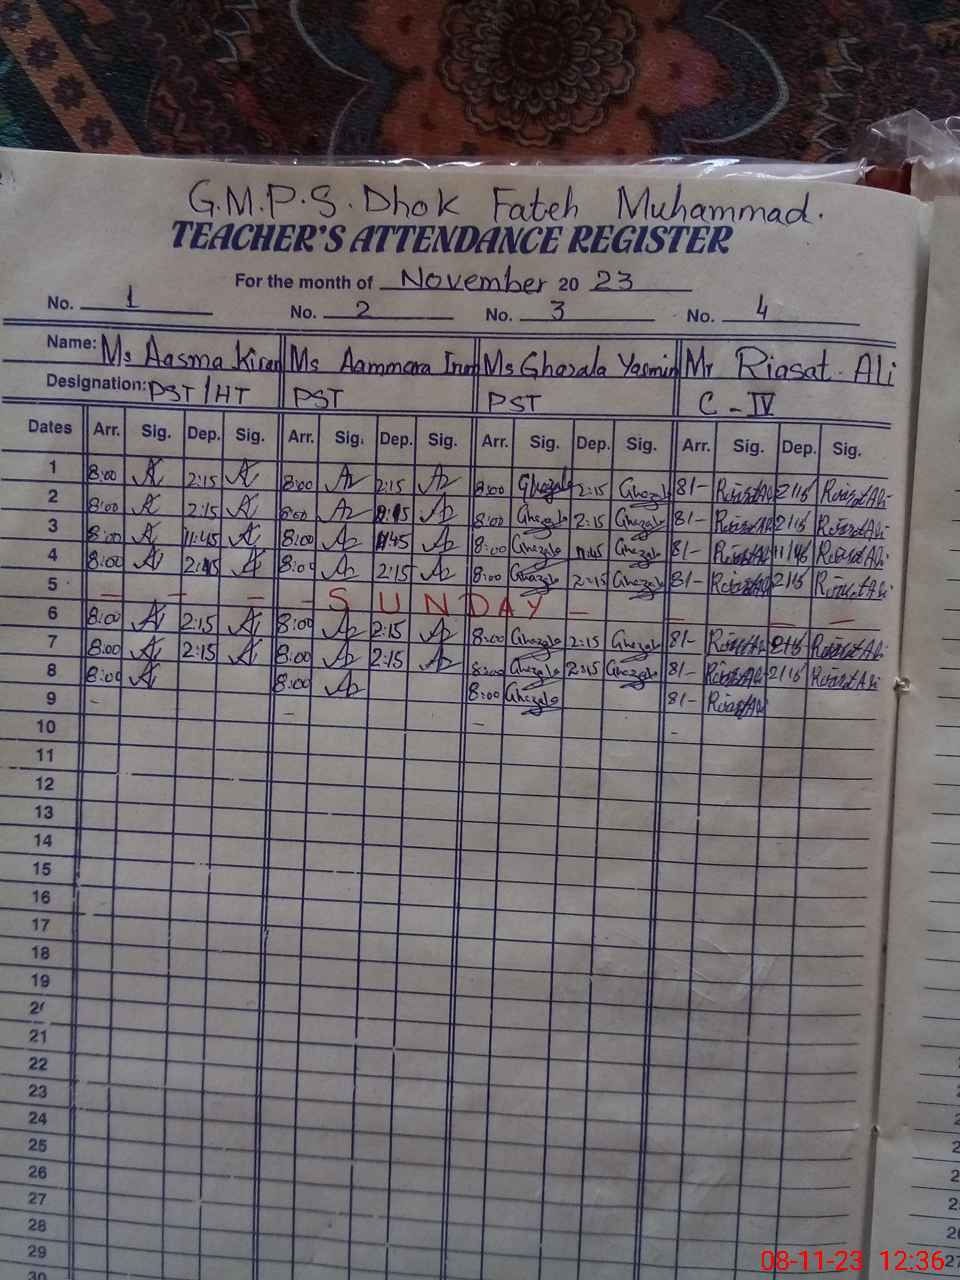 G.M.P.S. Dhok Fateh Muhammad.
TEACHER'S ATTENDANCE REGISTER
For the month of November 2023
No. 1 No. 2 No. 3 No. 4
Name: Ms Aasma Kiran Ms Aammara Ms Ghazala Yasmin Mr Riasat Ali
Designation: PST/HT PST PST C-IV
Dates Arr. Sig. Dep. Sig. Arr. Sig. Dep. Sig. Arr. Sig. Dep. Sig. Arr. Sig. Dep. Sig.
1 8:00 2:15 8:00 2:15 8:00 Ghazala 2:15 Ghazala 8/- Riasat Ali 2/15 Riasat Ali
2 8:00 2:15 8:00 2:15 8:00 Ghazala 2:15 Ghazala 8/- Riasat Ali 2/15 Riasat Ali
3 8:00 11:45 8:00 11:45 8:00 Ghazala 11:45 Ghazala 8/- Riasat Ali 11/45 Riasat Ali
4 8:00 2:15 8:00 2:15 8:00 Ghazala 2:15 Ghazala 8/- Riasat Ali 2/15 Riasat Ali
5 – – – – SUNDAY – – – –
6 8:00 2:15 8:00 2:15 8:00 Ghazala 2:15 Ghazala 8/- Riasat Ali 2/15 Riasat Ali
7 8:00 2:15 8:00 2:15 8:00 Ghazala 2:15 Ghazala 8/- Riasat Ali 2/15 Riasat Ali
8 8:00 8:00 8:00 Ghazala 8/- Riasat Ali
9
10
11
12
13
14
15
16
17
18
19
20
21
22
23
24
25
26
27
28
29
30
08-11-23 12:36